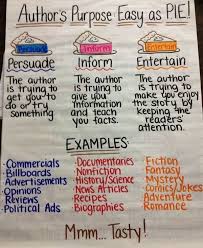 Author's Purpose Easy as PIE!
Persuade Inform Entertain
Persuade Inform Entertain
The author is trying to get you to do or try something
The author is trying to give you information and teach you facts.
The author is trying to make you enjoy the story by keeping the readers' attention.
EXAMPLES:
• Commercials
• Billboards
• Advertisements
• Opinions
• Reviews
• Political Ads
• Documentaries
• Nonfiction
• History/Science
• News Articles
• Recipes
• Biographies
• Fiction
• Fantasy
• Mystery
• Comics/Jokes
• Adventure
• Romance
Mmm... Tasty!